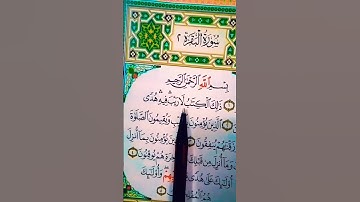 سُورَةُ الْبَقَرَةِ ٢
بِسْمِ اللَّهِ الرَّحْمٰنِ الرَّحِيمِ
ذٰلِكَ الْكِتٰبُ لَا رَيْبَ فِيهِ هُدًى
الَّذِينَ يُؤْمِنُونَ وَيُقِيمُونَ الصَّلٰوةَ
يُنْفِقُونَ يُؤْمِنُونَ بِمَا أُنْزِلَ
أُنْزِلَ مِنْ هُمْ يُوقِنُونَ
أُولٰئِكَ عَلٰى هُدًى وَأُولٰئِكَ